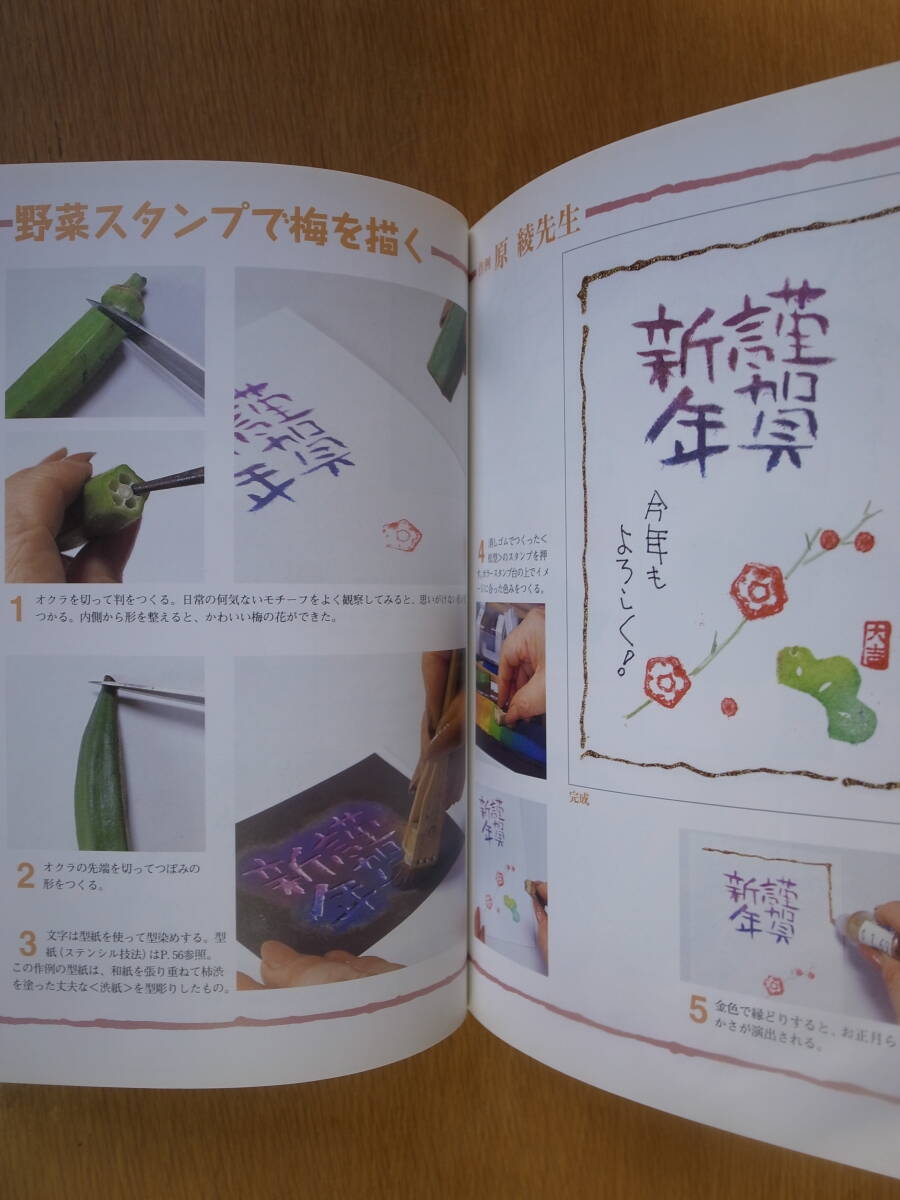 野菜スタンプで梅を描く
原 綾先生
1 オクラを切って判をつくる。日常の何気ないモチーフをよく観察してみると、思いがけない
つかる。内側から形を整えると、かわいい梅の花ができた。
2 オクラの先端を切ってつぼみの
形をつくる。
3 文字は型紙を使って型染めする。型
紙(ステンシル技法)はP.56参照。
この作例の型紙は、和紙を張り重ねて柿渋
を塗った丈夫な<渋紙>を型彫りしたもの。
4 消しゴムでつくった<
松型>のスタンプを押
カラースタンプ台の上でイメ
ージに合った色みをつくる。
謹賀
新年
今年も
よろしく!
大吉
完成
謹賀
新年
謹賀
新年
謹賀
新年
5 金色で縁どりすると、お正月ら
かさが演出される。